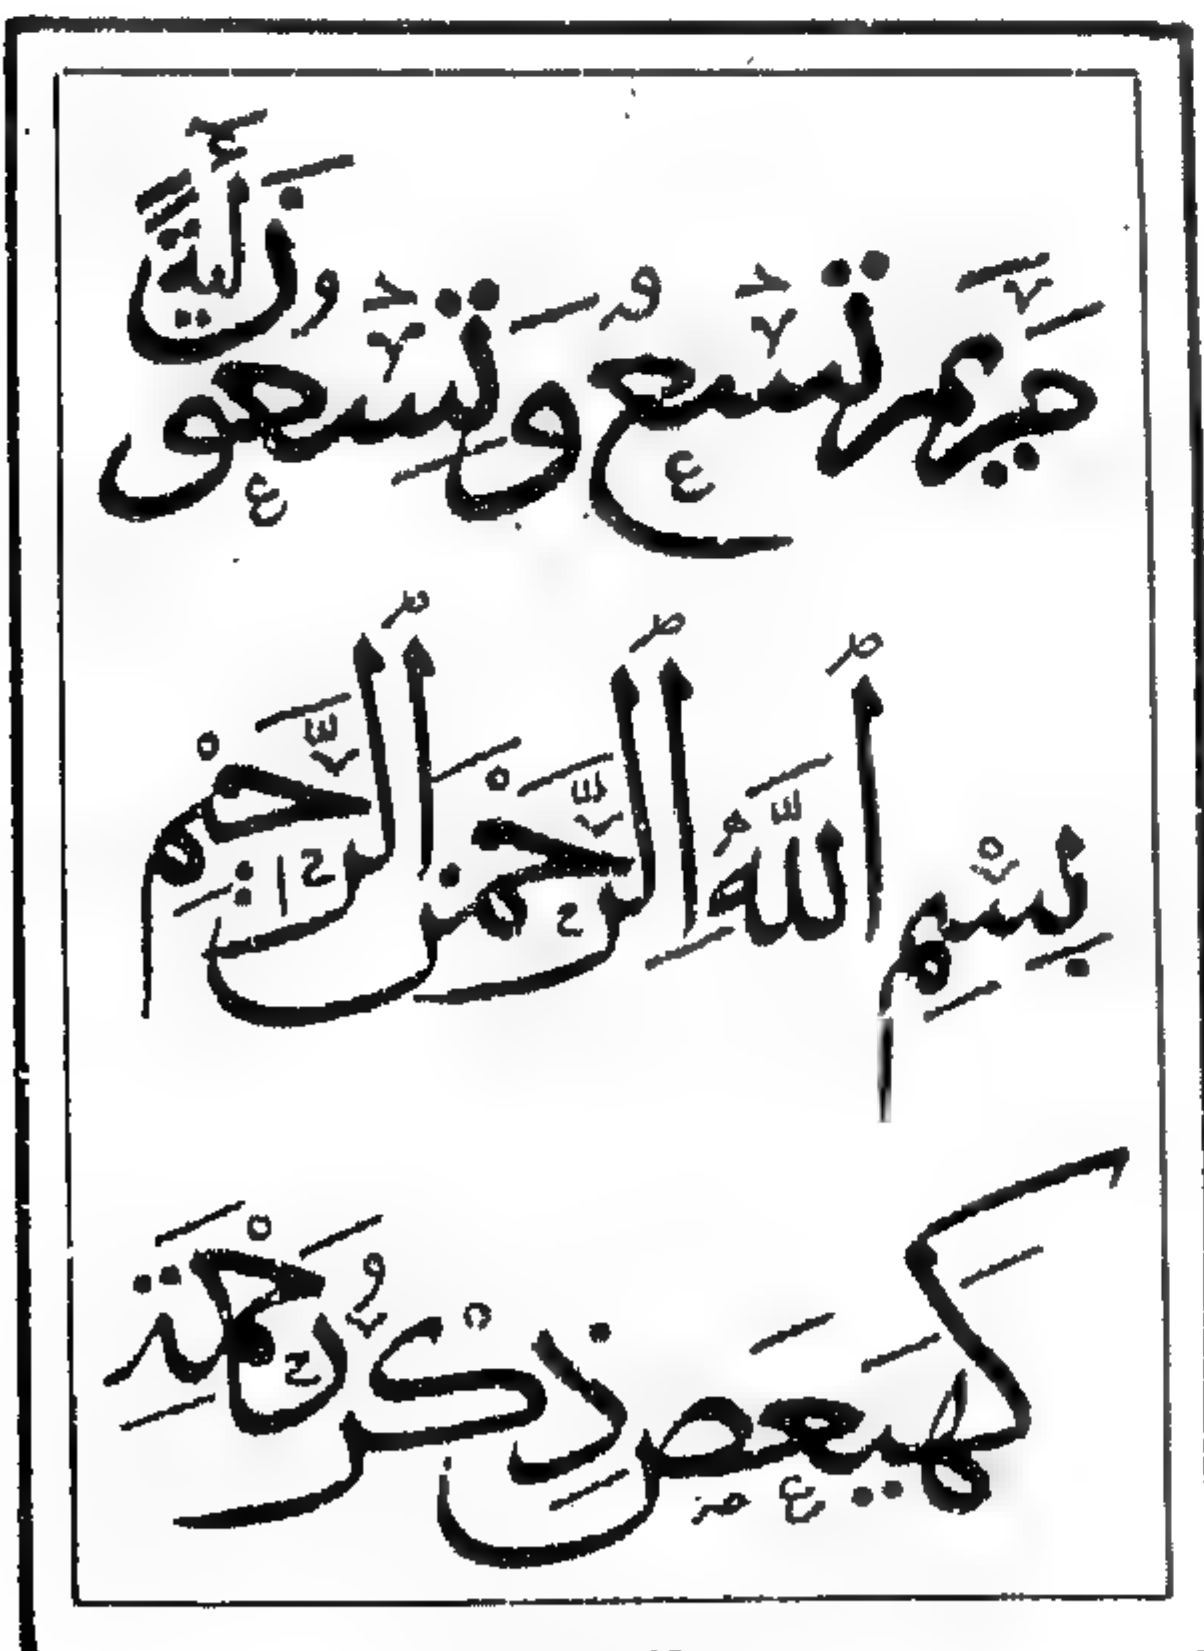 مَرْيَم تِسْعٌ وَتِسْعُونَ ءَايَةً
بِسْمِ ٱللَّهِ ٱلرَّحْمَنِ ٱلرَّحِيمِ
كَهَيَعَص ذِكْرُ رَحْمَتِ